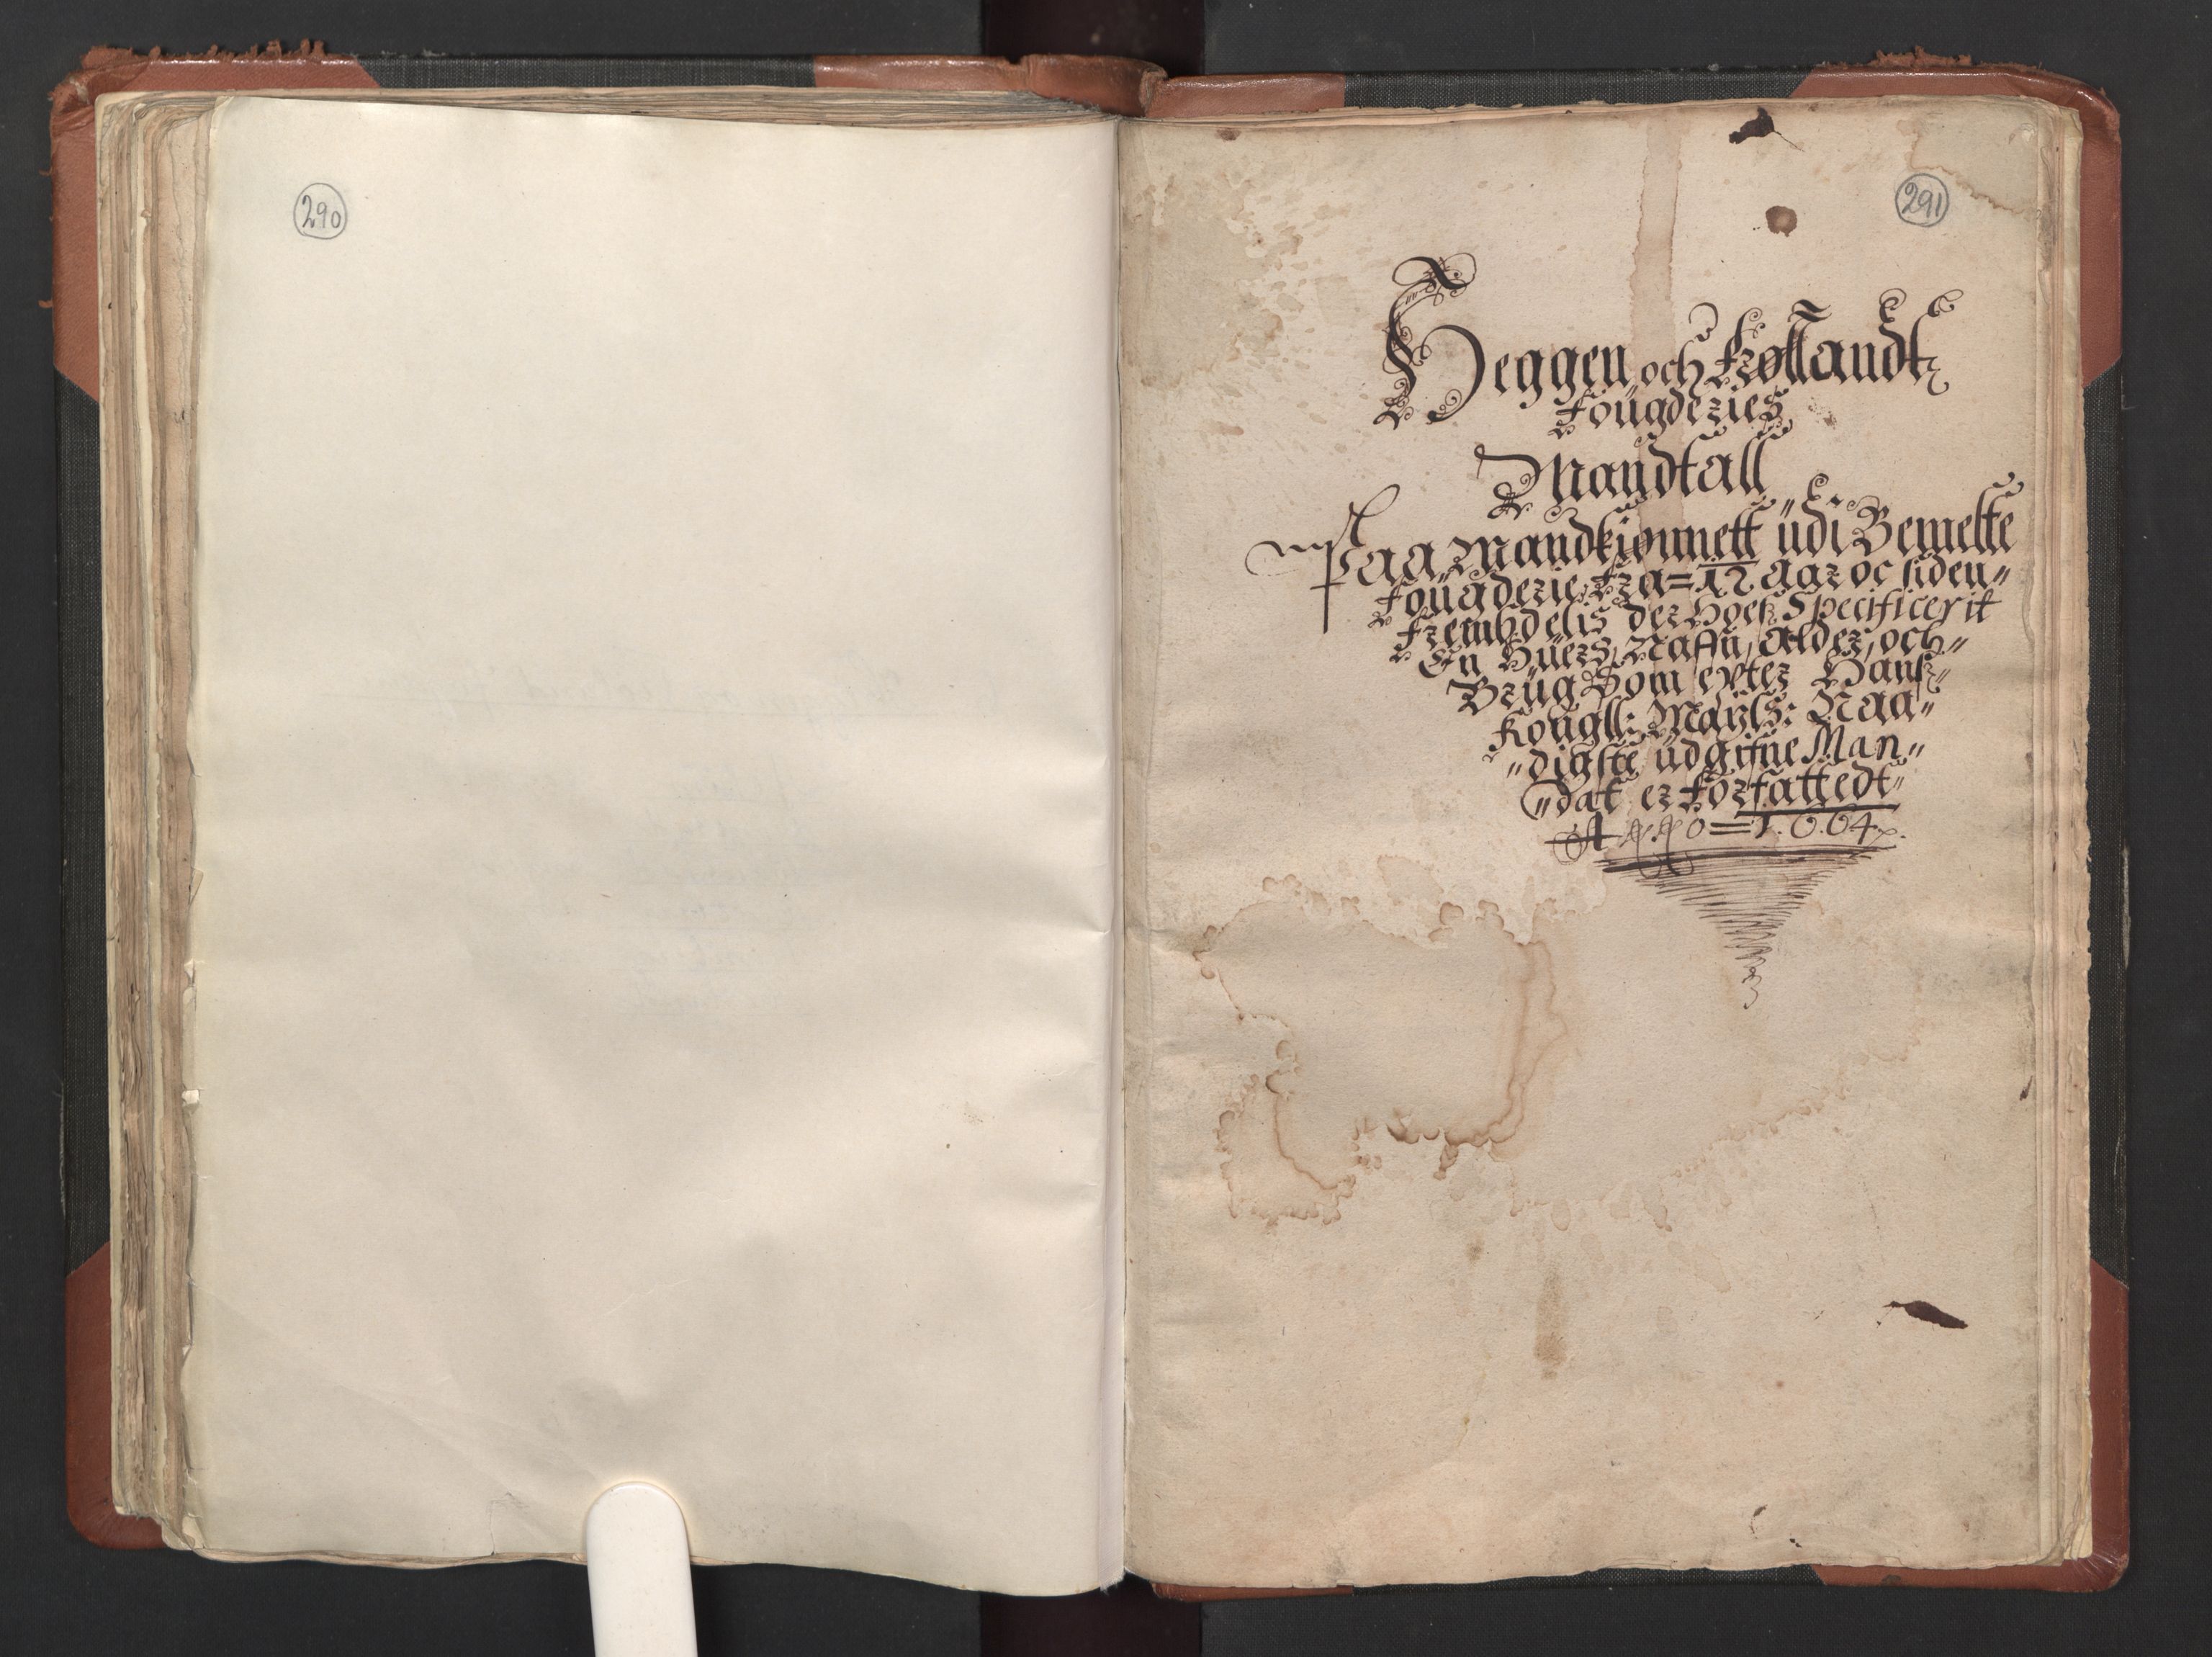 290
291
Heggen och Frøllandt
Fougderies
Mandtall
Paa Mandkiønnett udi Bemelte
Fougderie, Fra = 12 Agr oc siden
Fremhdelis der Hoes Specificerit
En Huers, Naffn, Alder, och
Brug Som epter Hans
Kongll: Maytz: Naa„
„digste udgifne Man„
„dat er forfattedt
ANNO = 1.6.64